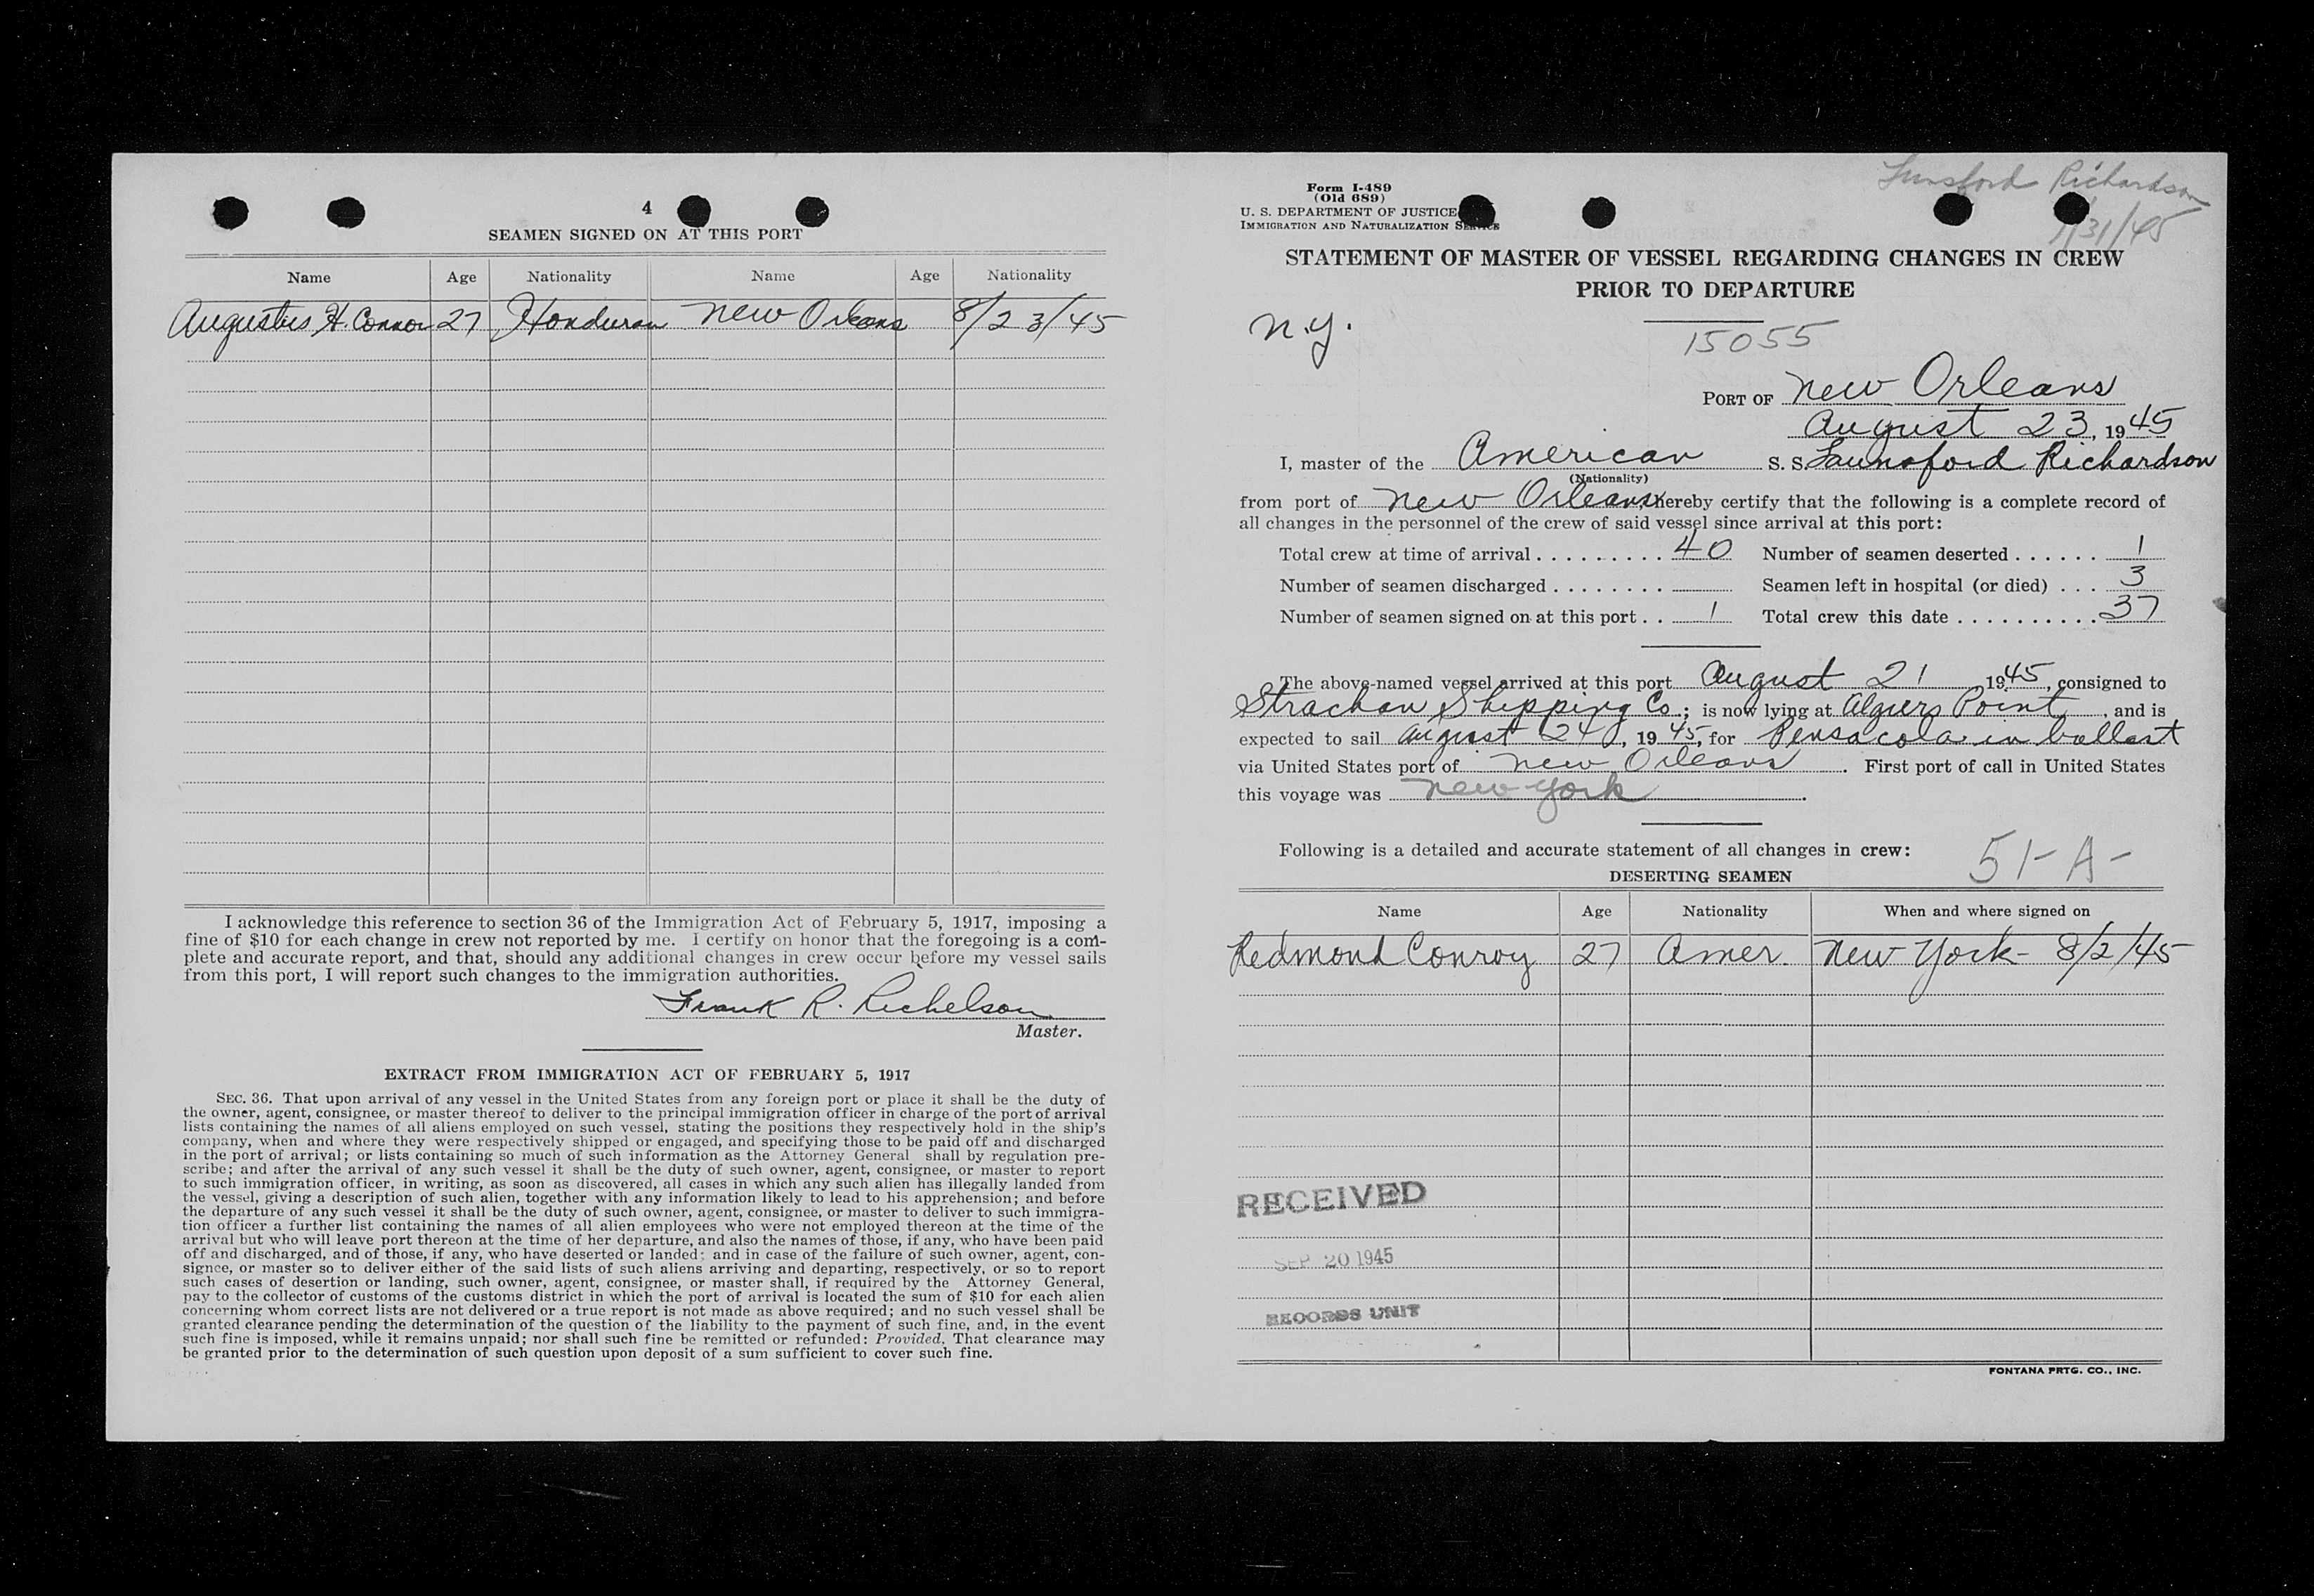 4
SEAMEN SIGNED ON AT THIS PORT
Name Age Nationality Name Age Nationality
Augustus H. Connor 27 Honduran New Orleans 8/23/45
I acknowledge this reference to section 36 of the Immigration Act of February 5, 1917, imposing a
fine of $10 for each change in crew not reported by me. I certify on honor that the foregoing is a com-
plete and accurate report, and that, should any additional changes in crew occur before my vessel sails
from this port, I will report such changes to the immigration authorities.
Frank R. Richelson
Master.
EXTRACT FROM IMMIGRATION ACT OF FEBRUARY 5, 1917
SEC. 36. That upon arrival of any vessel in the United States from any foreign port or place it shall be the duty of
the owner, agent, consignee, or master thereof to deliver to the principal immigration officer in charge of the port of arrival
lists containing the names of all aliens employed on such vessel, stating the positions they respectively hold in the ship's
company, when and where they were respectively shipped or engaged, and specifying those to be paid off and discharged
in the port of arrival; or lists containing so much of such information as the Attorney General shall by regulation pre-
scribe; and after the arrival of any such vessel it shall be the duty of such owner, agent, consignee, or master to report
to such immigration officer, in writing, as soon as discovered, all cases in which any such alien has illegally landed from
the vessel, giving a description of such alien, together with any information likely to lead to his apprehension; and before
the departure of any such vessel it shall be the duty of such owner, agent, consignee, or master to deliver to such immigra-
tion officer a further list containing the names of all alien employees who were not employed thereon at the time of the
arrival but who will leave port thereon at the time of her departure, and also the names of those, if any, who have been paid
off and discharged, and of those, if any, who have deserted or landed; and in case of the failure of such owner, agent, con-
signee, or master so to deliver either of the said lists of such aliens arriving and departing, respectively, or so to report
such cases of desertion or landing, such owner, agent, consignee, or master shall, if required by the Attorney General,
pay to the collector of customs of the customs district in which the port of arrival is located the sum of $10 for each alien
concerning whom correct lists are not delivered or a true report is not made as above required; and no such vessel shall be
granted clearance pending the determination of the question of the liability to the payment of such fine, and, in the event
such fine is imposed, while it remains unpaid; nor shall such fine be remitted or refunded: Provided, That clearance may
be granted prior to the determination of such question upon deposit of a sum sufficient to cover such fine.
Lunsford Richardson
/31/45
Form I-489
(Old 689)
U. S. DEPARTMENT OF JUSTICE
IMMIGRATION AND NATURALIZATION SERVICE
STATEMENT OF MASTER OF VESSEL REGARDING CHANGES IN CREW
PRIOR TO DEPARTURE
N.Y.
15055
PORT OF New Orleans
August 23, 1945
I, master of the American S. S. Launsford Richardson
(Nationality)
from port of New Orleans, hereby certify that the following is a complete record of
all changes in the personnel of the crew of said vessel since arrival at this port:
Total crew at time of arrival . . . . . . . . . . 40 Number of seamen deserted . . . . . . 1
Number of seamen discharged . . . . . . . . Seamen left in hospital (or died) . . . 3
Number of seamen signed on at this port . . 1 Total crew this date . . . . . . . . . . . 37
The above-named vessel arrived at this port August 21 1945, consigned to
Strachan Shipping Co.; is now lying at Algiers Point, and is
expected to sail August 24, 1945, for Pensacola in ballast
via United States port of New Orleans. First port of call in United States
this voyage was New York.
Following is a detailed and accurate statement of all changes in crew:
51-A-
DESERTING SEAMEN
Name Age Nationality When and where signed on
Redmond Conroy 27 Amer. New York- 8/2/45
RECEIVED
SEP 20 1945
RECORDS UNIT
FONTANA PRTG. CO., INC.